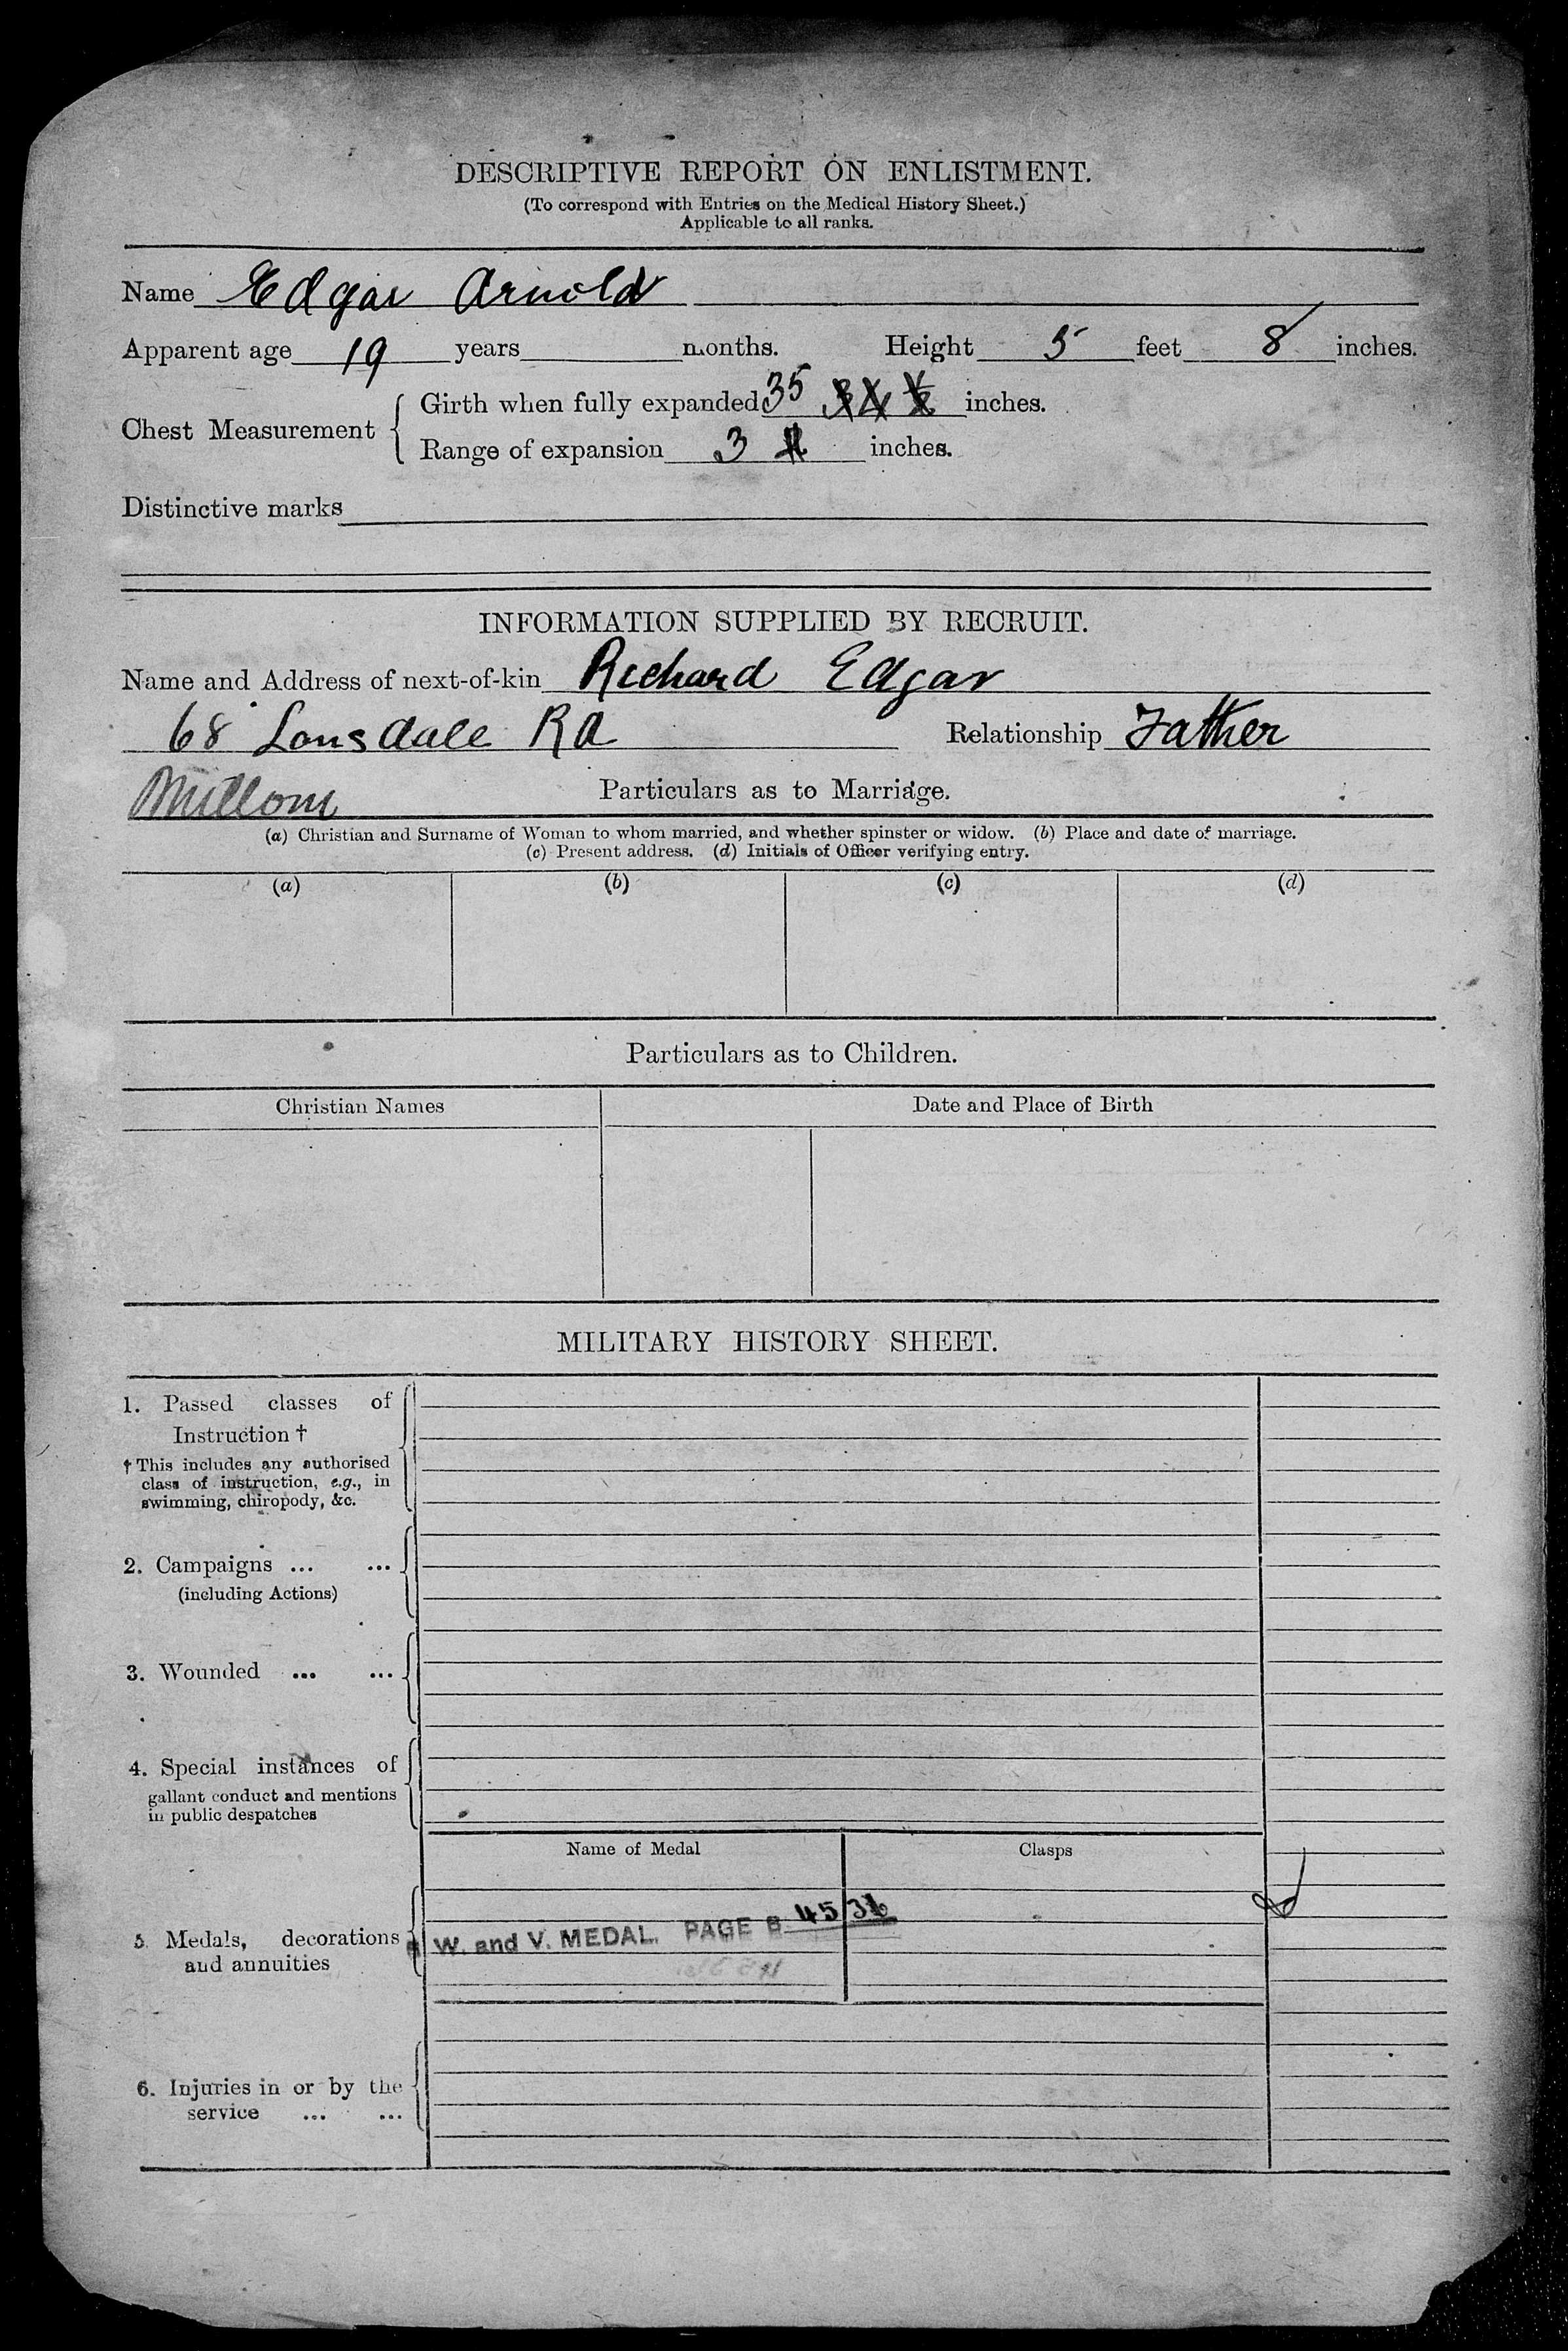 DESCRIPTIVE REPORT ON ENLISTMENT.
(To correspond with Entries on the Medical History Sheet.)
Applicable to all ranks.
Name Edgar Arnold
Apparent age 19 years months. Height 5 feet 8 inches.
Chest Measurement
Girth when fully expanded 35 inches.
Range of expansion 3 inches.
Distinctive marks
INFORMATION SUPPLIED BY RECRUIT.
Name and Address of next-of-kin Richard Edgar
68 Lonsdale Rd Relationship Father
Millom Particulars as to Marriage.
(a) Christian and Surname of Woman to whom married, and whether spinster or widow. (b) Place and date of marriage.
(c) Present address. (d) Initials of Officer verifying entry.
(a) (b) (c) (d)
Particulars as to Children.
Christian Names Date and Place of Birth
MILITARY HISTORY SHEET.
1. Passed classes of
Instruction †
† This includes any authorised
class of instruction, e.g., in
swimming, chiropody, &c.
2. Campaigns ... ...
(including Actions)
3. Wounded ... ...
4. Special instances of
gallant conduct and mentions
in public despatches
Name of Medal Clasps
5. Medals, decorations
and annuities
W. and V. MEDAL. PAGE B 4536
6. Injuries in or by the
service ... ...